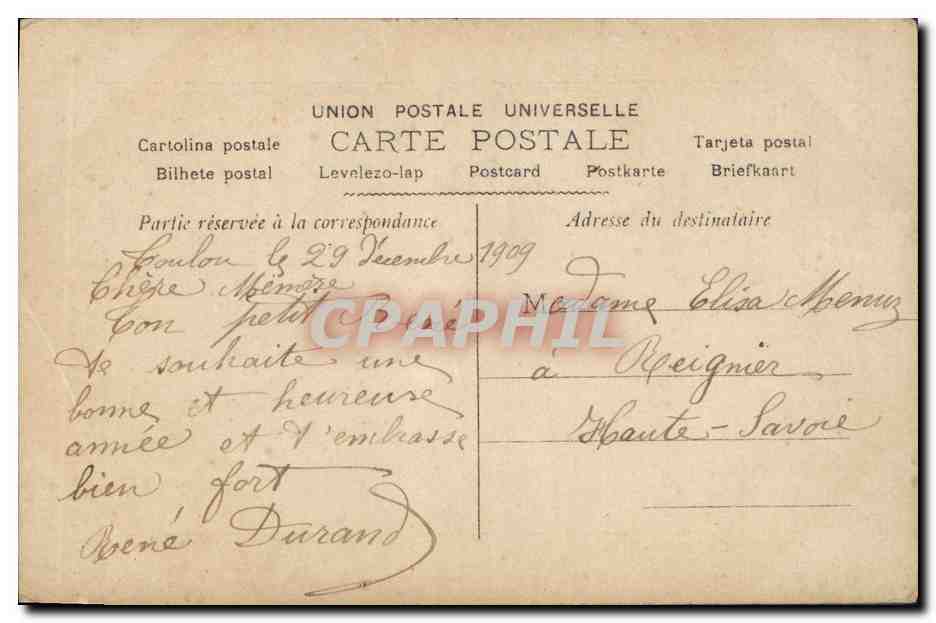 UNION POSTALE UNIVERSELLE
CARTE POSTALE
Cartolina postale Tarjeta postal
Bilhete postal Levelezo-lap Postcard Postkarte Briefkaart
Partie réservée à la correspondance
Toulon le 29 décembre 1909
Chère Mémère
Ton petit René
te souhaite une
bonne et heureuse
année et t'embrasse
bien fort
René Durand
Adresse du destinataire
Madame Elisa
à Reignier
Haute-Savoie
CPAPHIL